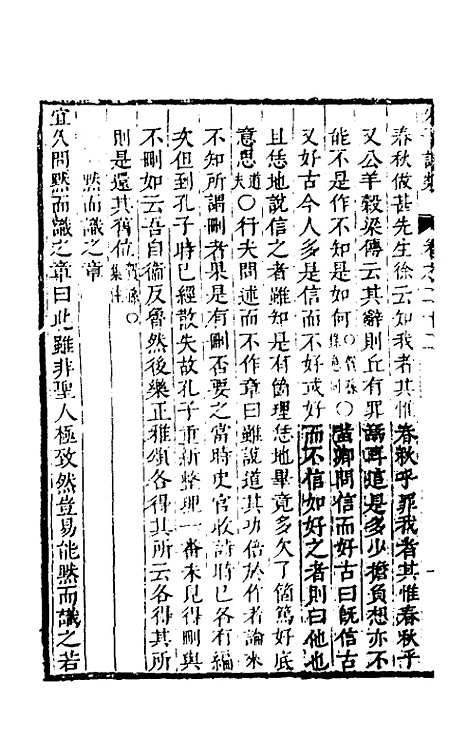 春秋做甚先生徐云知我者其惟春秋乎罪我者其惟春秋乎
又公羊穀梁傳云其辭則丘有罪焉耳這是多少擔負想亦不
能不是作不知是如何賀孫集義〇黃卿問信而好古曰旣信古
又好古今人多是信而不好或好而不信如好之者則曰他也
且恁地說信之者雖知是有箇理恁地畢竟多欠了箇篤好底
意思道夫〇行夫問述而不作章曰雖說道其功倍於作者論來
不知所謂刪者果是有刪否要之當時史官收詩時已各有編
次但到孔子時已經散失故孔子重新整理一番未見得刪與
不刪如云吾自衞反魯然後樂正雅頌各得其所云各得其所
則是還其舊位賀孫〇集注
默而識之章
宜久問默而識之章曰此雖非聖人極致然豈易能默而識之若